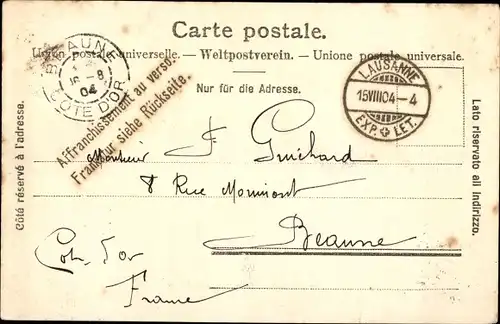 Carte postale.
Union postale universelle. — Weltpostverein. — Unione postale universale.
Nur für die Adresse.
BEAUNE
16 - 8
04
COTE D'OR
LAUSANNE
15 VIII 04 - 4
EXP. LET.
Affranchissement au verso.
Frankatur siehe Rückseite.
Côté réservé à l'adresse.
Lato riservato all indirizzo.
Monsieur F. Guichard
8 Rue
Beaune
Cote d'or
France